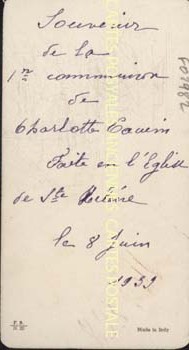 Souvenir
de la
1re communion
de
Charlotte
Faite en l'Eglise
de Ste
le 8 Juin
1939
Made in Italy